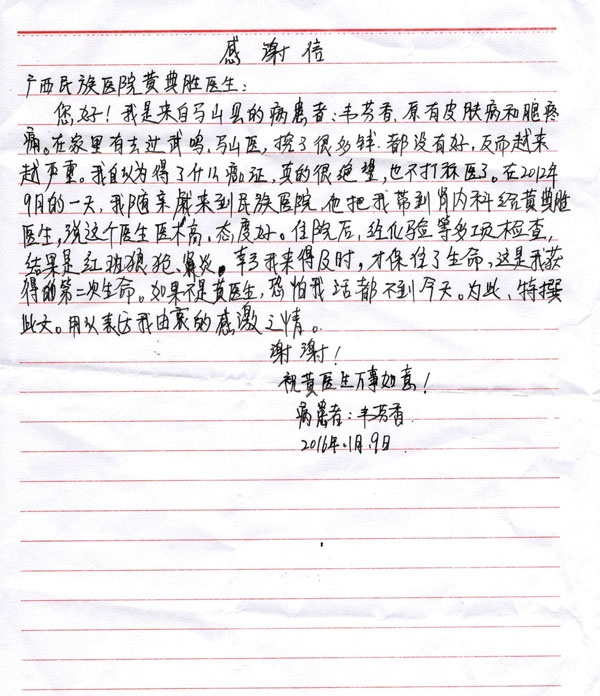 感谢信
广西民族医院黄典胜医生：
您好！我是来自马山县的病患者：韦芬香，原有皮肤病和腿疼
痛。在家里有去过武鸣、马山医，挖了很多钱，都没有好，反而越来
越严重。我自以为得了什么癌症，真的很绝望，也不打称医了。在2012年
9月的一天，我随亲戚来到民族医院，他把我带到肾内科给黄典胜
医生，说这个医生医术高，态度好。住院后，经化验等多项检查，
结果是红斑狼疮、肾炎。幸亏我来得及时，才保住了生命，这是我获
得的第二次生命。如果不是黄医生，恐怕我活都不到今天。为此、特撰
此文。用以表达我由衷的感激之情。
谢谢！
祝黄医生万事如意！
病患者：韦芬香
2016年.1月.9日